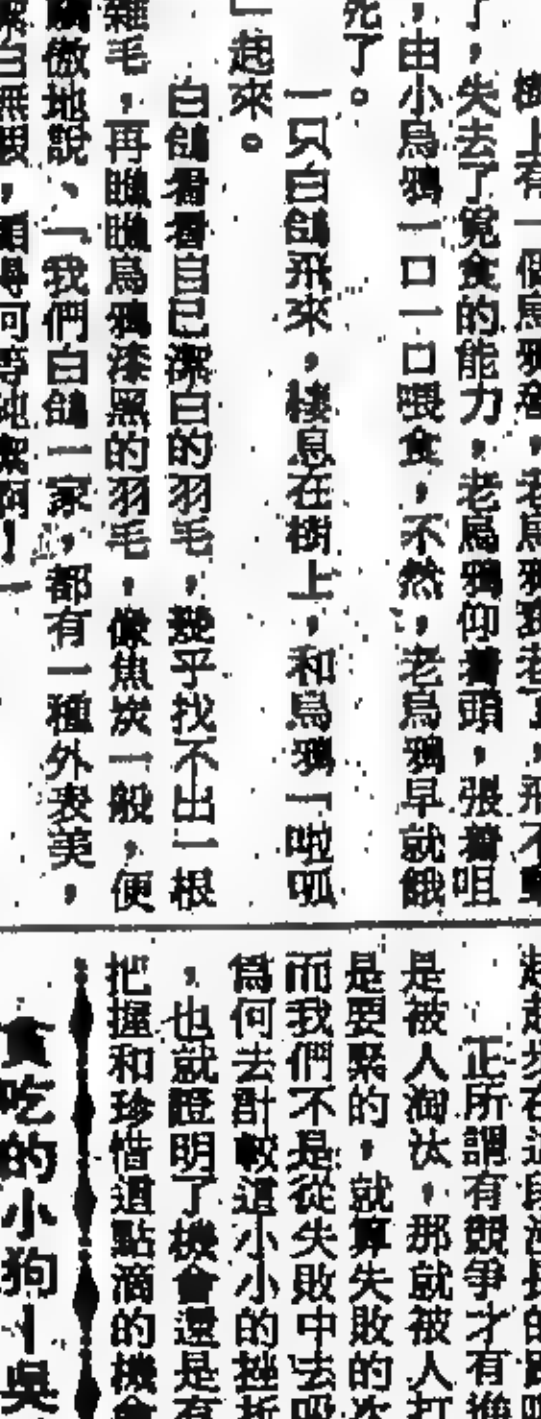 樹上有一個烏鴉巢，老烏鴉衰老了，飛不動
了，失去了覓食的能力，老烏鴉仰着頭，張着咀
，由小烏鴉一口一口喂食，不然，老烏鴉早就餓
死了。
一只白鴿飛來，棲息在樹上，和烏鴉「啦呱
」起來。
白鴿看看自已潔白的羽毛，幾乎找不出一根
雜毛，再瞧瞧烏鴉漆黑的羽毛，像焦炭一般，便
驕傲地說、「我們白鴿一家，都有一種外表美，
潔白無瑕，顯得何等純潔啊！」
正所謂有競爭才有進
是被人淘汰，那就被人打
是要緊的，就算失敗的次
而我們不是從失敗中去吸
爲何去計較這小小的挫折
，也就證明了機會還是有
把握和珍惜這點滴的機會
貪吃的小狗－吳